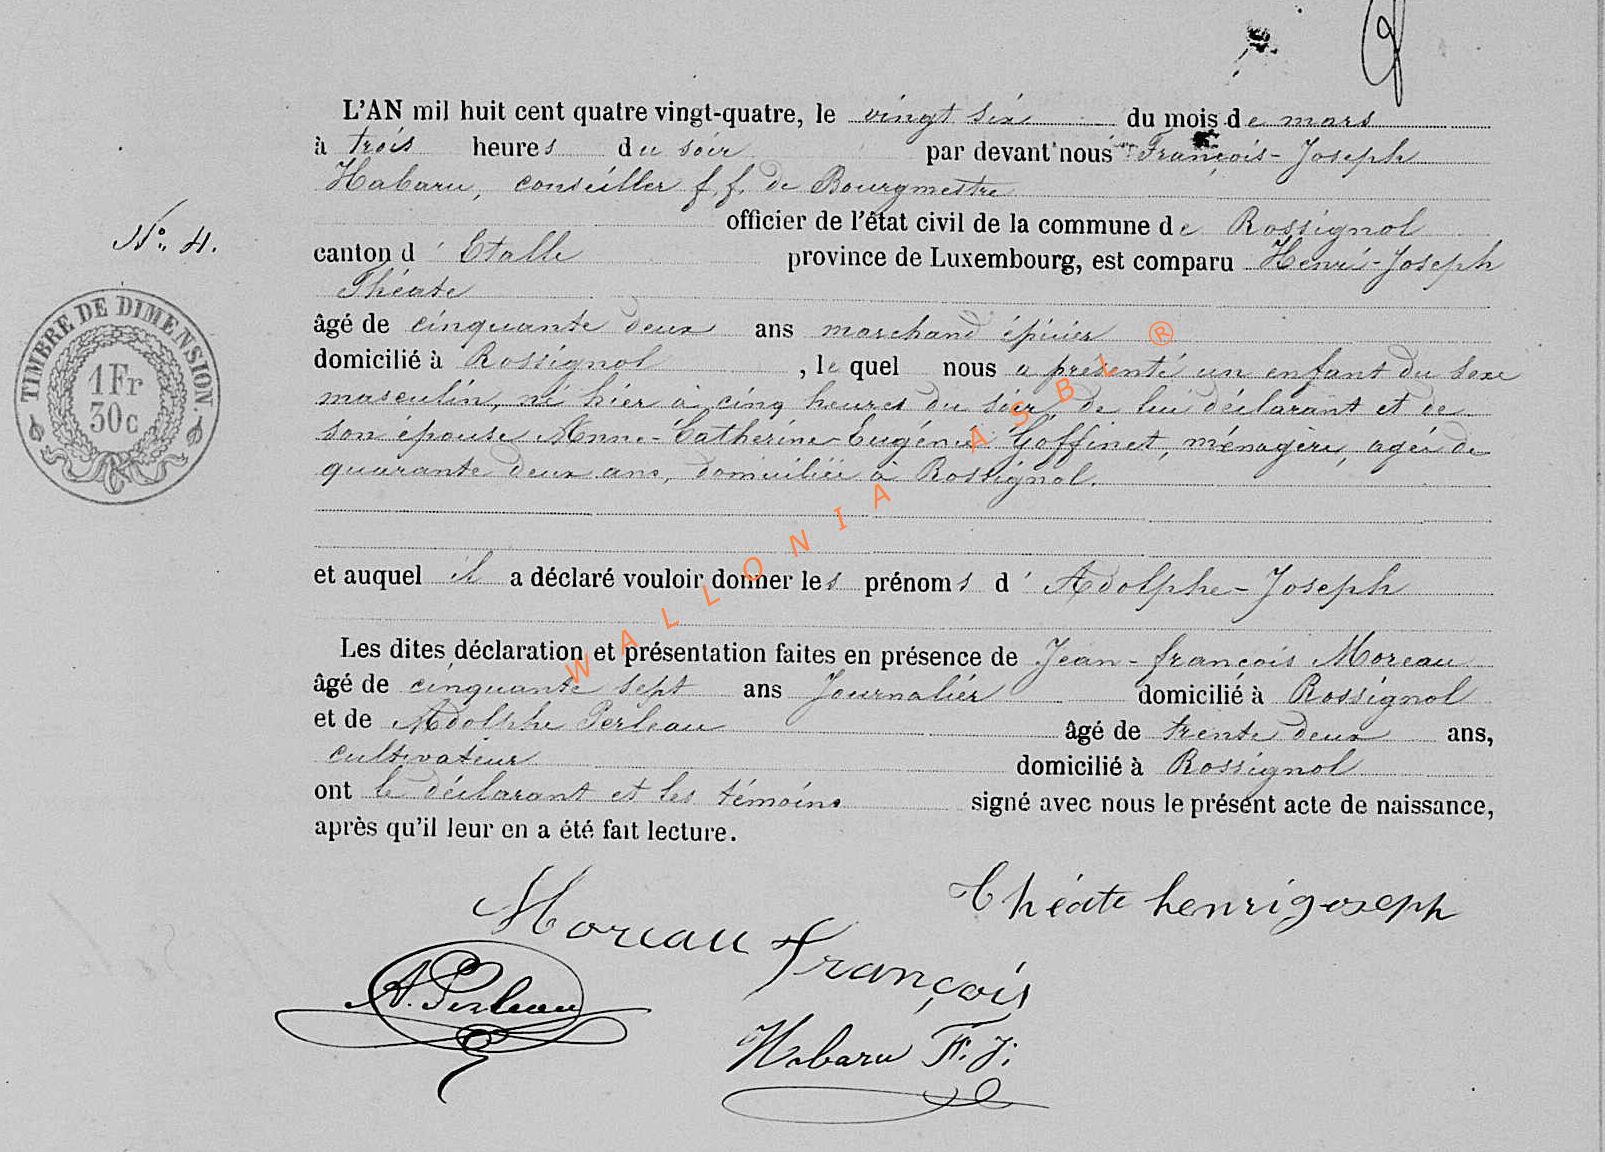 L'AN mil huit cent quatre vingt-quatre, le vingt six du mois de mars
à trois heures du soir par devant nous François-Joseph
Habaru, conseiller f. f. de Bourgmestre
officier de l'état civil de la commune de Rossignol
N° 4.
canton d' Etalle province de Luxembourg, est comparu Henri-Joseph
Théate
âgé de cinquante deux ans marchand épicier
domicilié à Rossignol, le quel nous a présenté un enfant du sexe
masculin, né hier à cinq heures du soir, de lui déclarant et de
son épouse Anne-Catherine-Eugénie Goffinet, ménagère, agée de
quarante deux ans, domiciliée à Rossignol.
et auquel il a déclaré vouloir donner les prénoms d' Adolphe-Joseph
Les dites déclaration et présentation faites en présence de Jean-françois Moreau
âgé de cinquante sept ans Journalier domicilié à Rossignol
et de Adolphe Perleau âgé de trente deux ans,
cultivateur domicilié à Rossignol
ont le déclarant et les témoins signé avec nous le présent acte de naissance,
après qu'il leur en a été fait lecture.
Théate henrigoseph
Moreau françois
A. Perleau
Habaru F. J.
TIMBRE DE DIMENSION.
1 Fr
30 c
WALLONIA ASBL ®